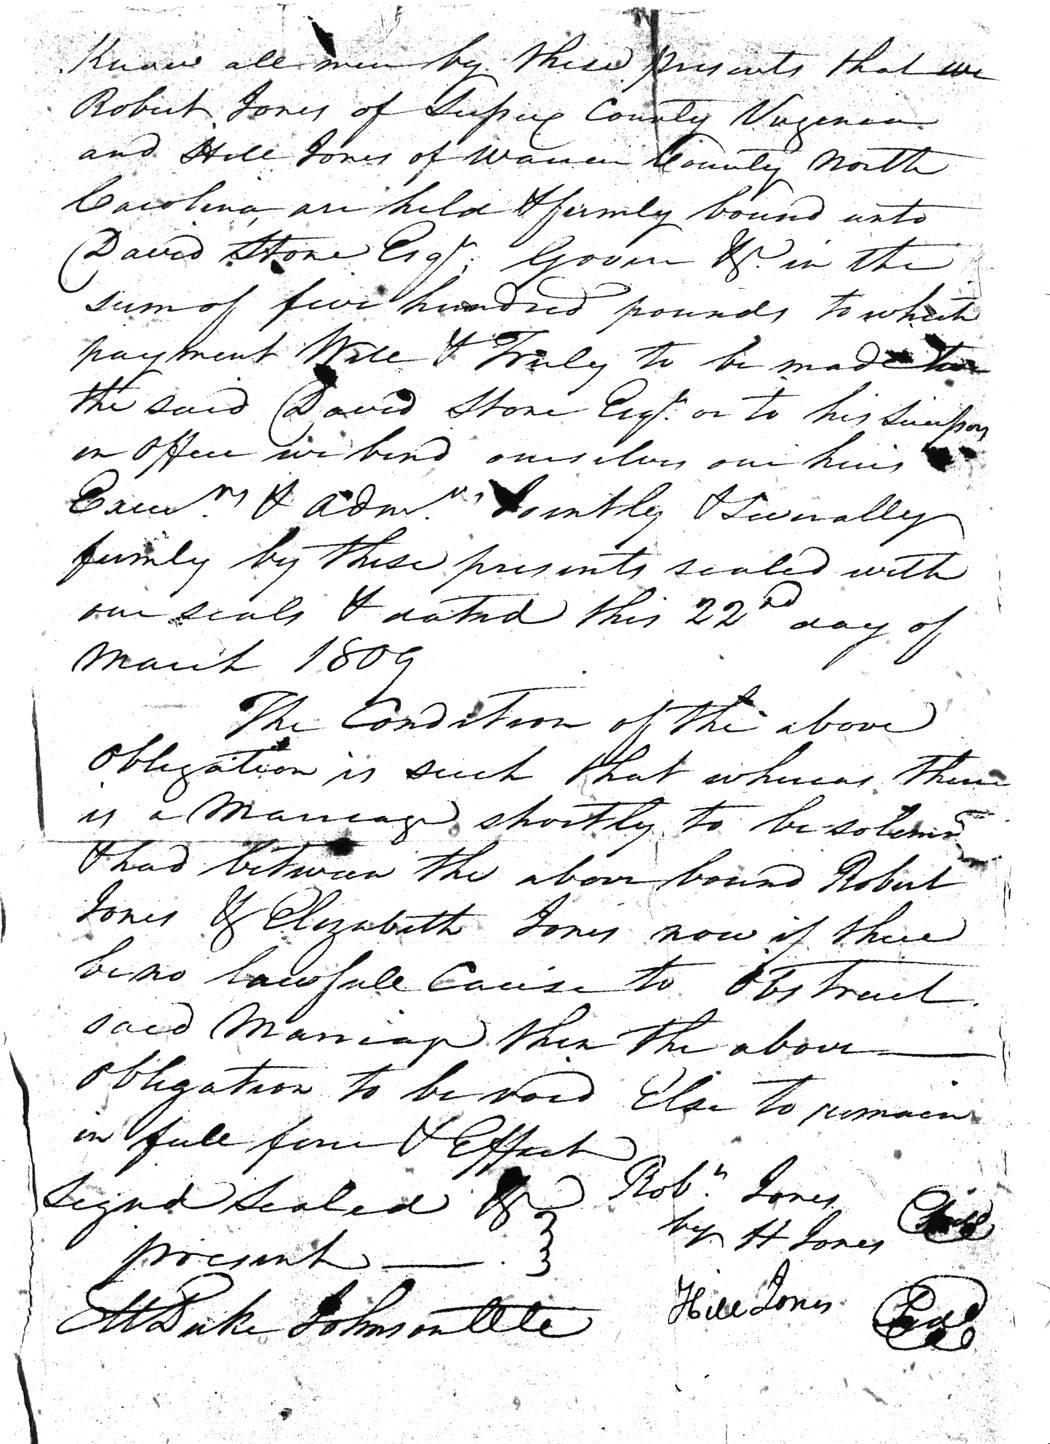 Know all men by these presents that we
Robert Jones of Sussex County Virginia
and Hill Jones of Warren County North
Carolina, are held & firmly bound unto
David Stone Esqr. Govenr &c. in the
sum of five hundred pounds to which
payment Well & Truly to be made to
the said David Stone Esqr. or to his Successors
in Office we bind ourselves our heirs
Execu.rs & Adm.rs Jointly & Severally
firmly by these presents sealed with
our seals & dated this 22nd day of
March 1809
The Condition of the above
Obligation is such that whereas there
is a Marriage shortly to be solemd
& had between the above bound Robert
Jones & Elizabeth Jones now if there
be no lawfull Cause to Obstruct
said Marriage then the above
Obligation to be void Else to remain
in full force & Effect
Signd Sealed &
present
Rob.t Jones
by H Jones
Hill Jones Seal
M Duke Johnson CCC